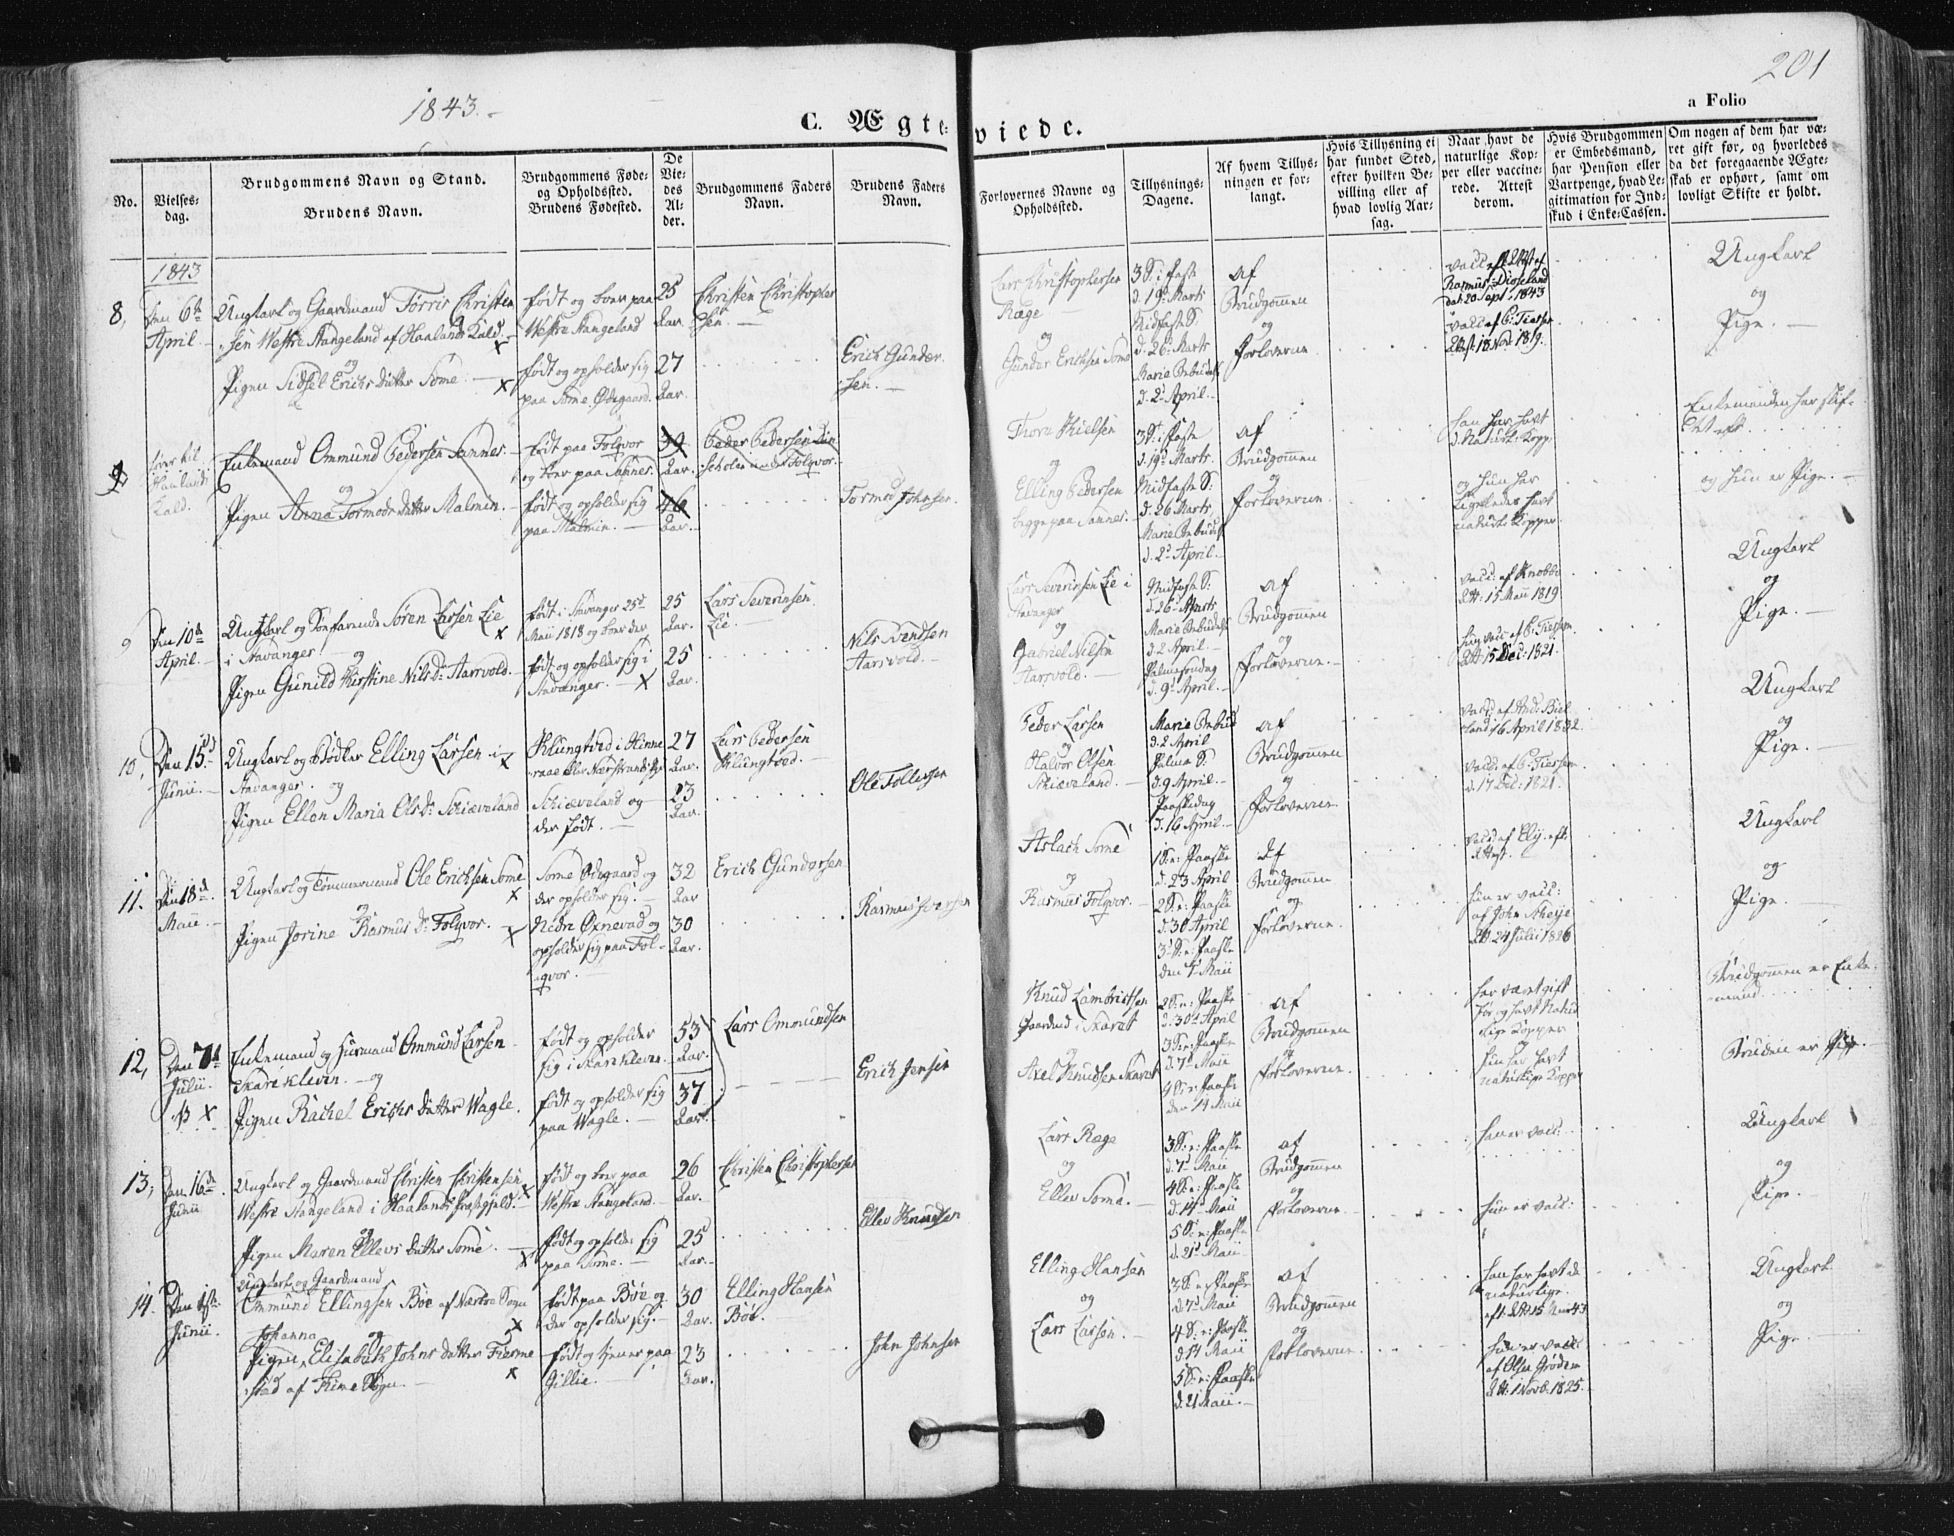 1843.
201
C. Ægte-
viede.
a Folio
No.
Vielses-
dag.
Brudgommens Navn og Stand.
Brudens Navn.
Brudgommens Føde-
og Opholdssted.
Brudens Fødested.
De
Vie-
des
Al-
der.
Brudgommens Faders
Navn.
Brudens Faders
Navn.
Forlovernes Navne og
Opholdssted.
Tillysnings-
Dagene.
Af hvem Tillys-
ningen er for-
langt.
Hvis Tillysning ei
har fundet Sted,
efter hvilken Be-
villing eller af
hvad lovlig Aar-
sag.
Naar havt de
naturlige Kop-
per eller vaccine-
rede. Attest
derom.
Hvis Brudgommen
er Embedsmand,
har Pension eller
Vartpenge, hvad Le-
gitimation for Ind-
skud i Enke-Cassen.
Om nogen af dem har væ-
ret gift før, og hvorledes
da det foregaaende Ægte-
skab er ophørt, samt om
lovligt Skifte er holdt.
1843
8,
Den 6te
April
Ungkarl og Gaardmand Tørris Christen
sen Westre Stangeland af Haalands Kald
og
Pigen Sidsel Erichs datter Some
født og boer paa
Westre Stangeland
født og opholder sig
paa Some Ødegaard.
25
Aar.
27
Aar.
Christen Christopher
sen.
Erich Gunder
sen.
Lars Christophersen
Ræge
og
Gunder Erichsen Some
3 S. i Faste
d. 19de Marts
Midfaste S.
d. 26 Marts
Marie Bebudelse
d. 2 April
af
Brudgommen
og
Forloverne
Rasmus Diøseland
dat. 20 Sept. 1843
vacc. af C: Tiessen
Attst 18 Nov: 1819.
Ungkarl
og
Pige.
9
Haalands
Kald.
Enkemand Ommund Pedersen Sannes
og
Pigen Anna Tormods datter Malmin.
født paa Folqvor
og boer paa Sannes.
født og opholder sig
paa Malmin.
39
Aar.
46
Aar.
Peder Pedersen
under Folqvor.
Tormod Johnsen.
Thore Nielsen
og
Elling Pedersen
begge paa Sannes.
3 S. i Faste
d. 19de Marts.
Midfaste S.
d. 26 Marts
Marie Bebudelse
d. 2 April
af
Brudgommen
og
Forloverne
han har havt
d. naturl. Kopp.
og hun har
ligeledes havt
naturl. Kopper.
Enkemanden har skif-
tet
og hun er Pige.
9
Den 10de
April
Ungkarl og Søefarende Søren Larsen Lie
i Stavanger og
Pigen Gunild Kirstine Nils Dr Aarrvold.
født i Stavanger 25de
Maii 1818 og boer der
født og opholder sig i
Stavanger.
25
Aar.
25
Aar.
Lars Severinsen
Lie.
Nils Svendsen
Aarrvold.
Lars Severinsen Lie i
Stavanger
og
Gabriel Nilsen
Aarrvold.
Midfaste S:
d. 26 Marts
Marie Bebudelse
d. 2 April
Palmesøndag
d. 9de April.
af
Brudgommen
og
Forloverne.
vacc: af Knobbe
Att: 15 Maii 1819
hun vacc: af C: Tiessen
Att: 15 Dec: 1821.
Ungkarl
og
Pige.
10,
Den 15de
Junii
Ungkarl og Bødker Elling Larsen i
Stavanger. og
Pigen Ellen Maria Ols Dr Schiæveland
Klungtved i Hinne
raae
Schiæveland og
der født.
27
Aar.
23
Aar.
Lars Pedersen
Klungtved.
Ole Tollefsen
Peder Larsen
og
Halvor Olsen
Schiæveland.
Marie Bebud
d. 2 April
Palme S:
d. 9 April.
Paaskedag
d. 16 April.
af
Brudgommen
og
Forloverne
16 April 1832.
vacc: af C: Tiessen
d. 17 Dec: 1821.
Ungkarl
og
Pige.
11.
Den 18de
Maii
Ungkarl og Tømmermand Ole Erichsen Some
og
Pigen Jorine Rasmus Dr Folqvor.
Some Ødegaard og
der opholder sig.
Nedre Øxnevad og
opholder sig paa Fol-
qvor.
32
Aar
30
Aar.
Erich Gundersen
Rasmus Iversen
Aslach Some
og
Rasmus Folqvor.
1 S. e: Paaske
d. 23 April
2 S. e: Paaske
d. 30 April
3 S. e: Paaske
den 7 Maii
Af
Brudgommen
og
Forloverne.
Attest.
hun er vacc:
af John Areije
Att 24 Julii 1826
Ungkarl
og
Pige.
12,
Den 7de
Julii.
Enkemand og Huusmand Ommund Larsen
Skareklevin. og
Pigen Rachel Erichs datter Wagle.
født og opholder
sig i Skareklevin.
født og opholder sig
paa Wagle.
53
Aar.
37
Aar.
Lars Ommundsen
Erich Jensen
Knud Lambertsen
Gaardmd i Skaret
og
Axel Knudsen Skaret
2 S. e: Paaske
d. 30te April
3 S. e: Paaske
d. 7de Maii
4 S. e: Paaske
den 14 Maii
af
Brudgommen
og
Forloverne.
har været gift
før og havt Natur
lige Kopper
og
hun har havt
naturlige Kopper
Brudgommen er Enke-
mand
Bruden er Pige.
13,
Den 16de
Junii
Ungkarl og Gaardmand Christen Christensen
Westre Stangeland i Haalands Præstegjeld.
og
Pigen Maren Ellevs datter Some.
født og boer paa
Westre Stangeland.
født og opholder sig
paa Some.
26
Aar.
25
Aar.
Christen Christophersen
Ellev Knudsen
Lars Ræge
og
Ellev Some.
3 S. e: Paaske
d. 7de Maii
4 S. e: Paaske
d. 14 Maii
5 S. e: Paaske
d. 21 Maii
af
Brudgommen
og
Forloverne.
han er vacc:
hun er vacc:
Ungkarl
og
Pige.
14.
Den 1ste
Junii.
Ungkarl og Gaardmand
Ommund Ellingsen Bøe af Nærboe Sogn
Johanna og
Pigen, Elisabeth Johns datter Tierme
stad af Time Sogn.
født paa Bøe og
der opholder sig.
født og tjener paa
Gillie.
30
Aar.
23
Aar.
Elling Hansen
Bøe.
John Johnsen
Elling Hansen
og
Lars Larsen.
3 S. e: Paaske
d. 7de Maii
4 S. e: Paaske
d. 14 Maii
5 S. e: Paaske
d. 21 Maii.
af
Brudgommen
og
Forloverne.
han har havt de
naturlige
hun er vacc:
af Olsen Grødem
Att: 1 Novb. 1825.
Ungkarl
og
Pige.